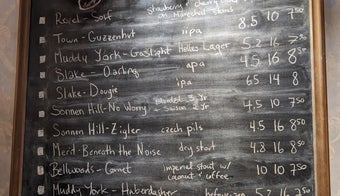 strawberry + cherry
Rorschach - Soft on Marechal 8.5 10 7.50
Town - Guzzenhut iipa 8 10 7.50
Muddy York - Gaslight Helles Lager 5.2 16 7.50
Slake - Darling apa 4.5 16 8.50
Slake - Dougie ipa 65 14 8
Sonnen Hill - No Worry blended 3 yr + saison 2 yr 4.5 10 7.50
Sonnen Hill - Zigler czech pils 4.5 16 8.50
Merit - Beneath the Noise dry stout 4.8 16 8.50
Bellwoods - Comet imperial stout w/ coconut + coffee 10 10 8
Muddy York - Haberdasher 5.2 16 7.50